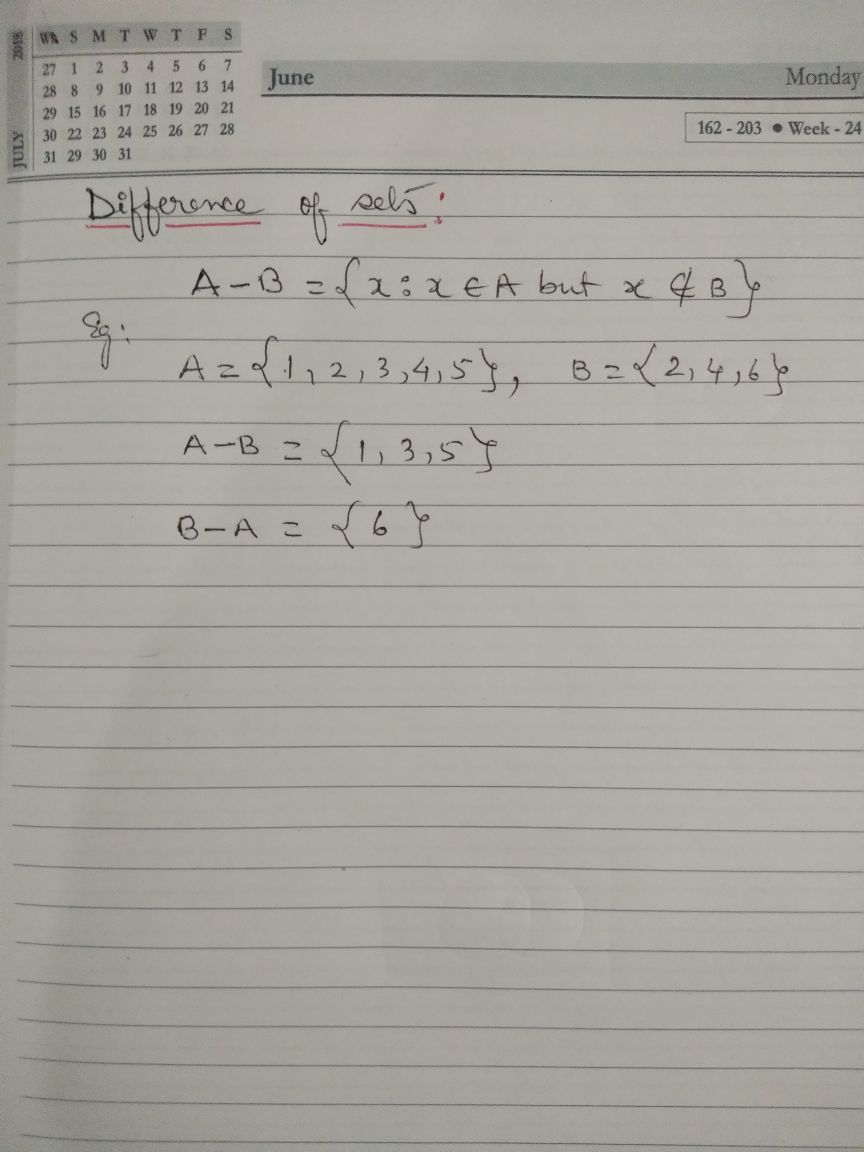 JULY 2018
Wk S M T W T F S
27 1 2 3 4 5 6 7
28 8 9 10 11 12 13 14
29 15 16 17 18 19 20 21
30 22 23 24 25 26 27 28
31 29 30 31
June Monday
162 - 203 ● Week - 24
Difference of sets:
A-B = {x : x ∈ A but x ∉ B}
Eg:
A = {1, 2, 3, 4, 5}, B = {2, 4, 6}
A-B = {1, 3, 5}
B-A = {6}